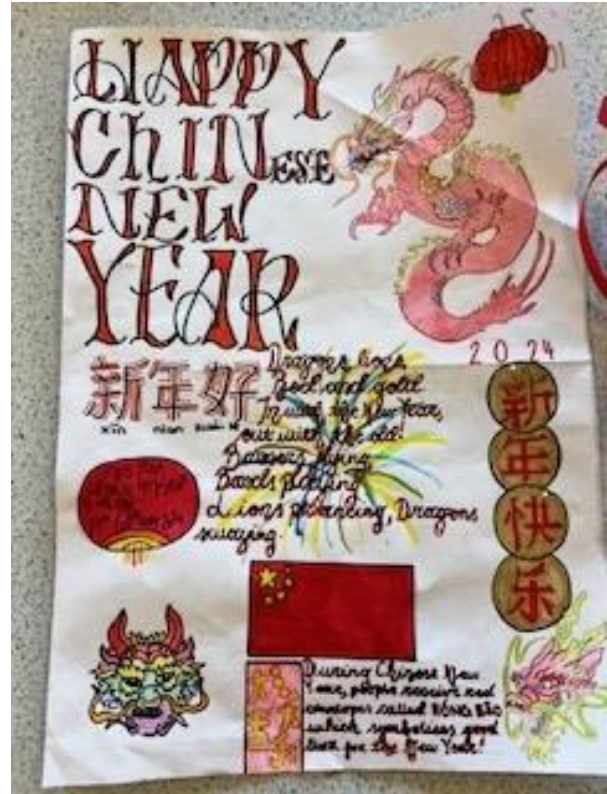 HAPPY
ChINESE
NEW
YEAR
2024
新年好
xīn nian
Dragons
Red and gold
In with the New Year,
out with the old!
Banners flying
Bands playing
Lions prancing, Dragons
swaying.
新
年
快
乐
During Chinese New
Year, people receive red
envelopes called HÓNG BĀO
which symbolises good
luck for the New Year!